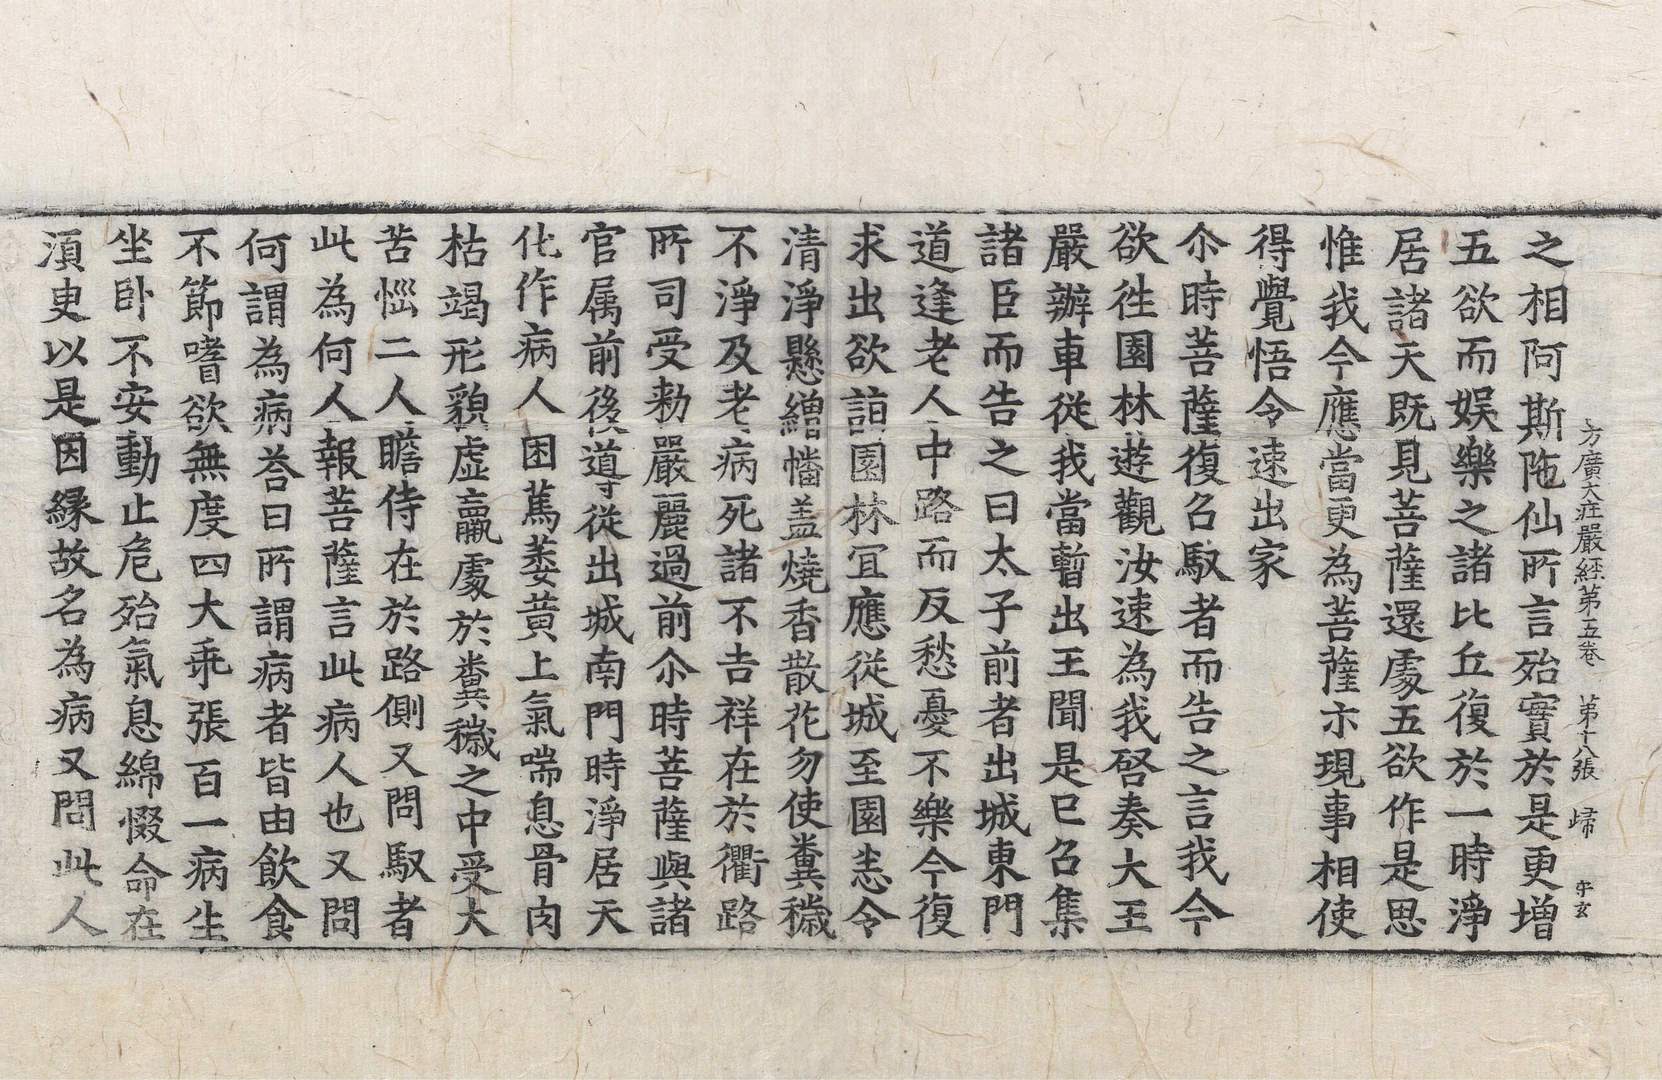 方廣大莊嚴經第五卷　第十八張　歸　守玄
之相阿斯陁仙所言殆實於是更增
五欲而娛樂之諸比丘復於一時淨
居諸天既見菩薩還處五欲作是思
惟我今應當更為菩薩示現事相使
得覺悟令速出家
尒時菩薩復召馭者而告之言我今
欲往園林遊觀汝速為我啓奏大王
嚴辦車從我當暫出王聞是已召集
諸臣而告之曰太子前者出城東門
道逢老人中路而反愁憂不樂今復
求出欲詣園林冝應從城至園悉令
清淨懸繒幡盖燒香散花勿使糞穢
不淨及老病死諸不吉祥在於衢路
所司受勑嚴麗過前尒時菩薩與諸
官属前後導從出城南門時淨居天
化作病人困篤萎黃上氣喘息骨肉
枯竭形貌虛羸處於糞穢之中受大
苦惱二人瞻侍在於路側又問馭者
此為何人報菩薩言此病人也又問
何謂為病荅曰所謂病者皆由飲食
不節嗜欲無度四大乖張百一病生
坐卧不安動止危殆氣息綿惙命在
湏臾以是因緣故名為病又問此人